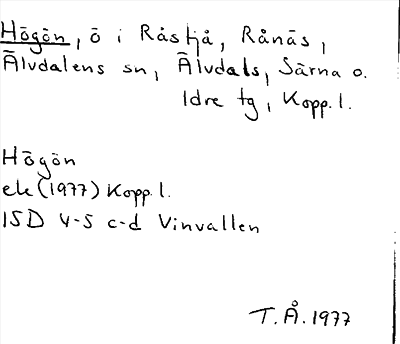 Högön, ö i Råstjå, Rånäs,
Älvdalens sn, Älvdals, Särna o.
Idre tg, Kopp.l.
Högön
ek (1977) Kopp.l.
15D 4-5 c-d Vinvallen
T.Å. 1977